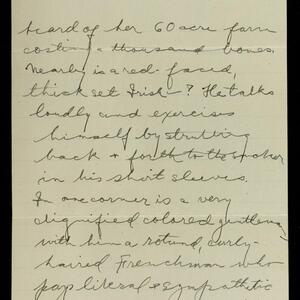 heard of her 60 acre farm
costing a thousand bones.
Nearby is a red-faced,
thick set Irish-? He talks
loudly and exercises
himself by strutting
back & forth to the smoker
in his short sleeves.
In one corner is a very
dignified colored gentleman
with him a rotund, curly-
haired Frenchman who
pays literal & sympathetic